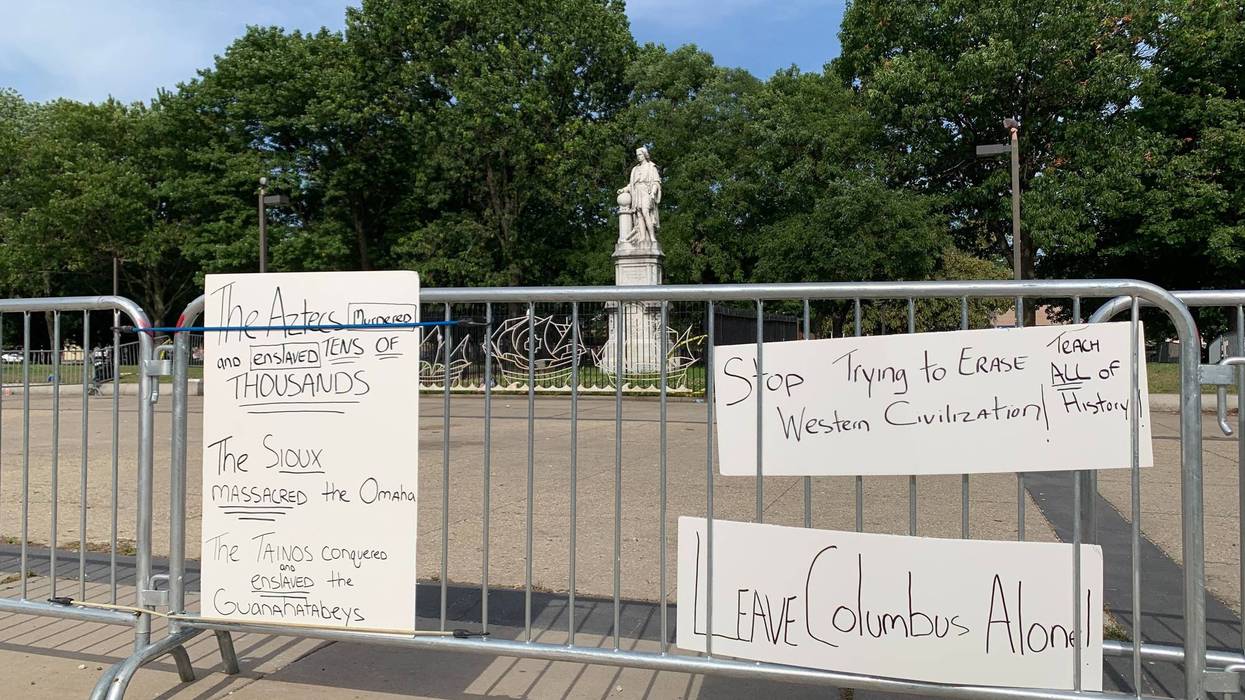 The Aztecs Murdered
and enslaved TENS OF
THOUSANDS
The Sioux
MASSACRED the Omaha
The TAINOS conquered
and
enslaved the
Guanahatabeys
Stop Trying to ERASE
Western Civilization!
Teach
ALL of
History!
LEAVE Columbus Alone!